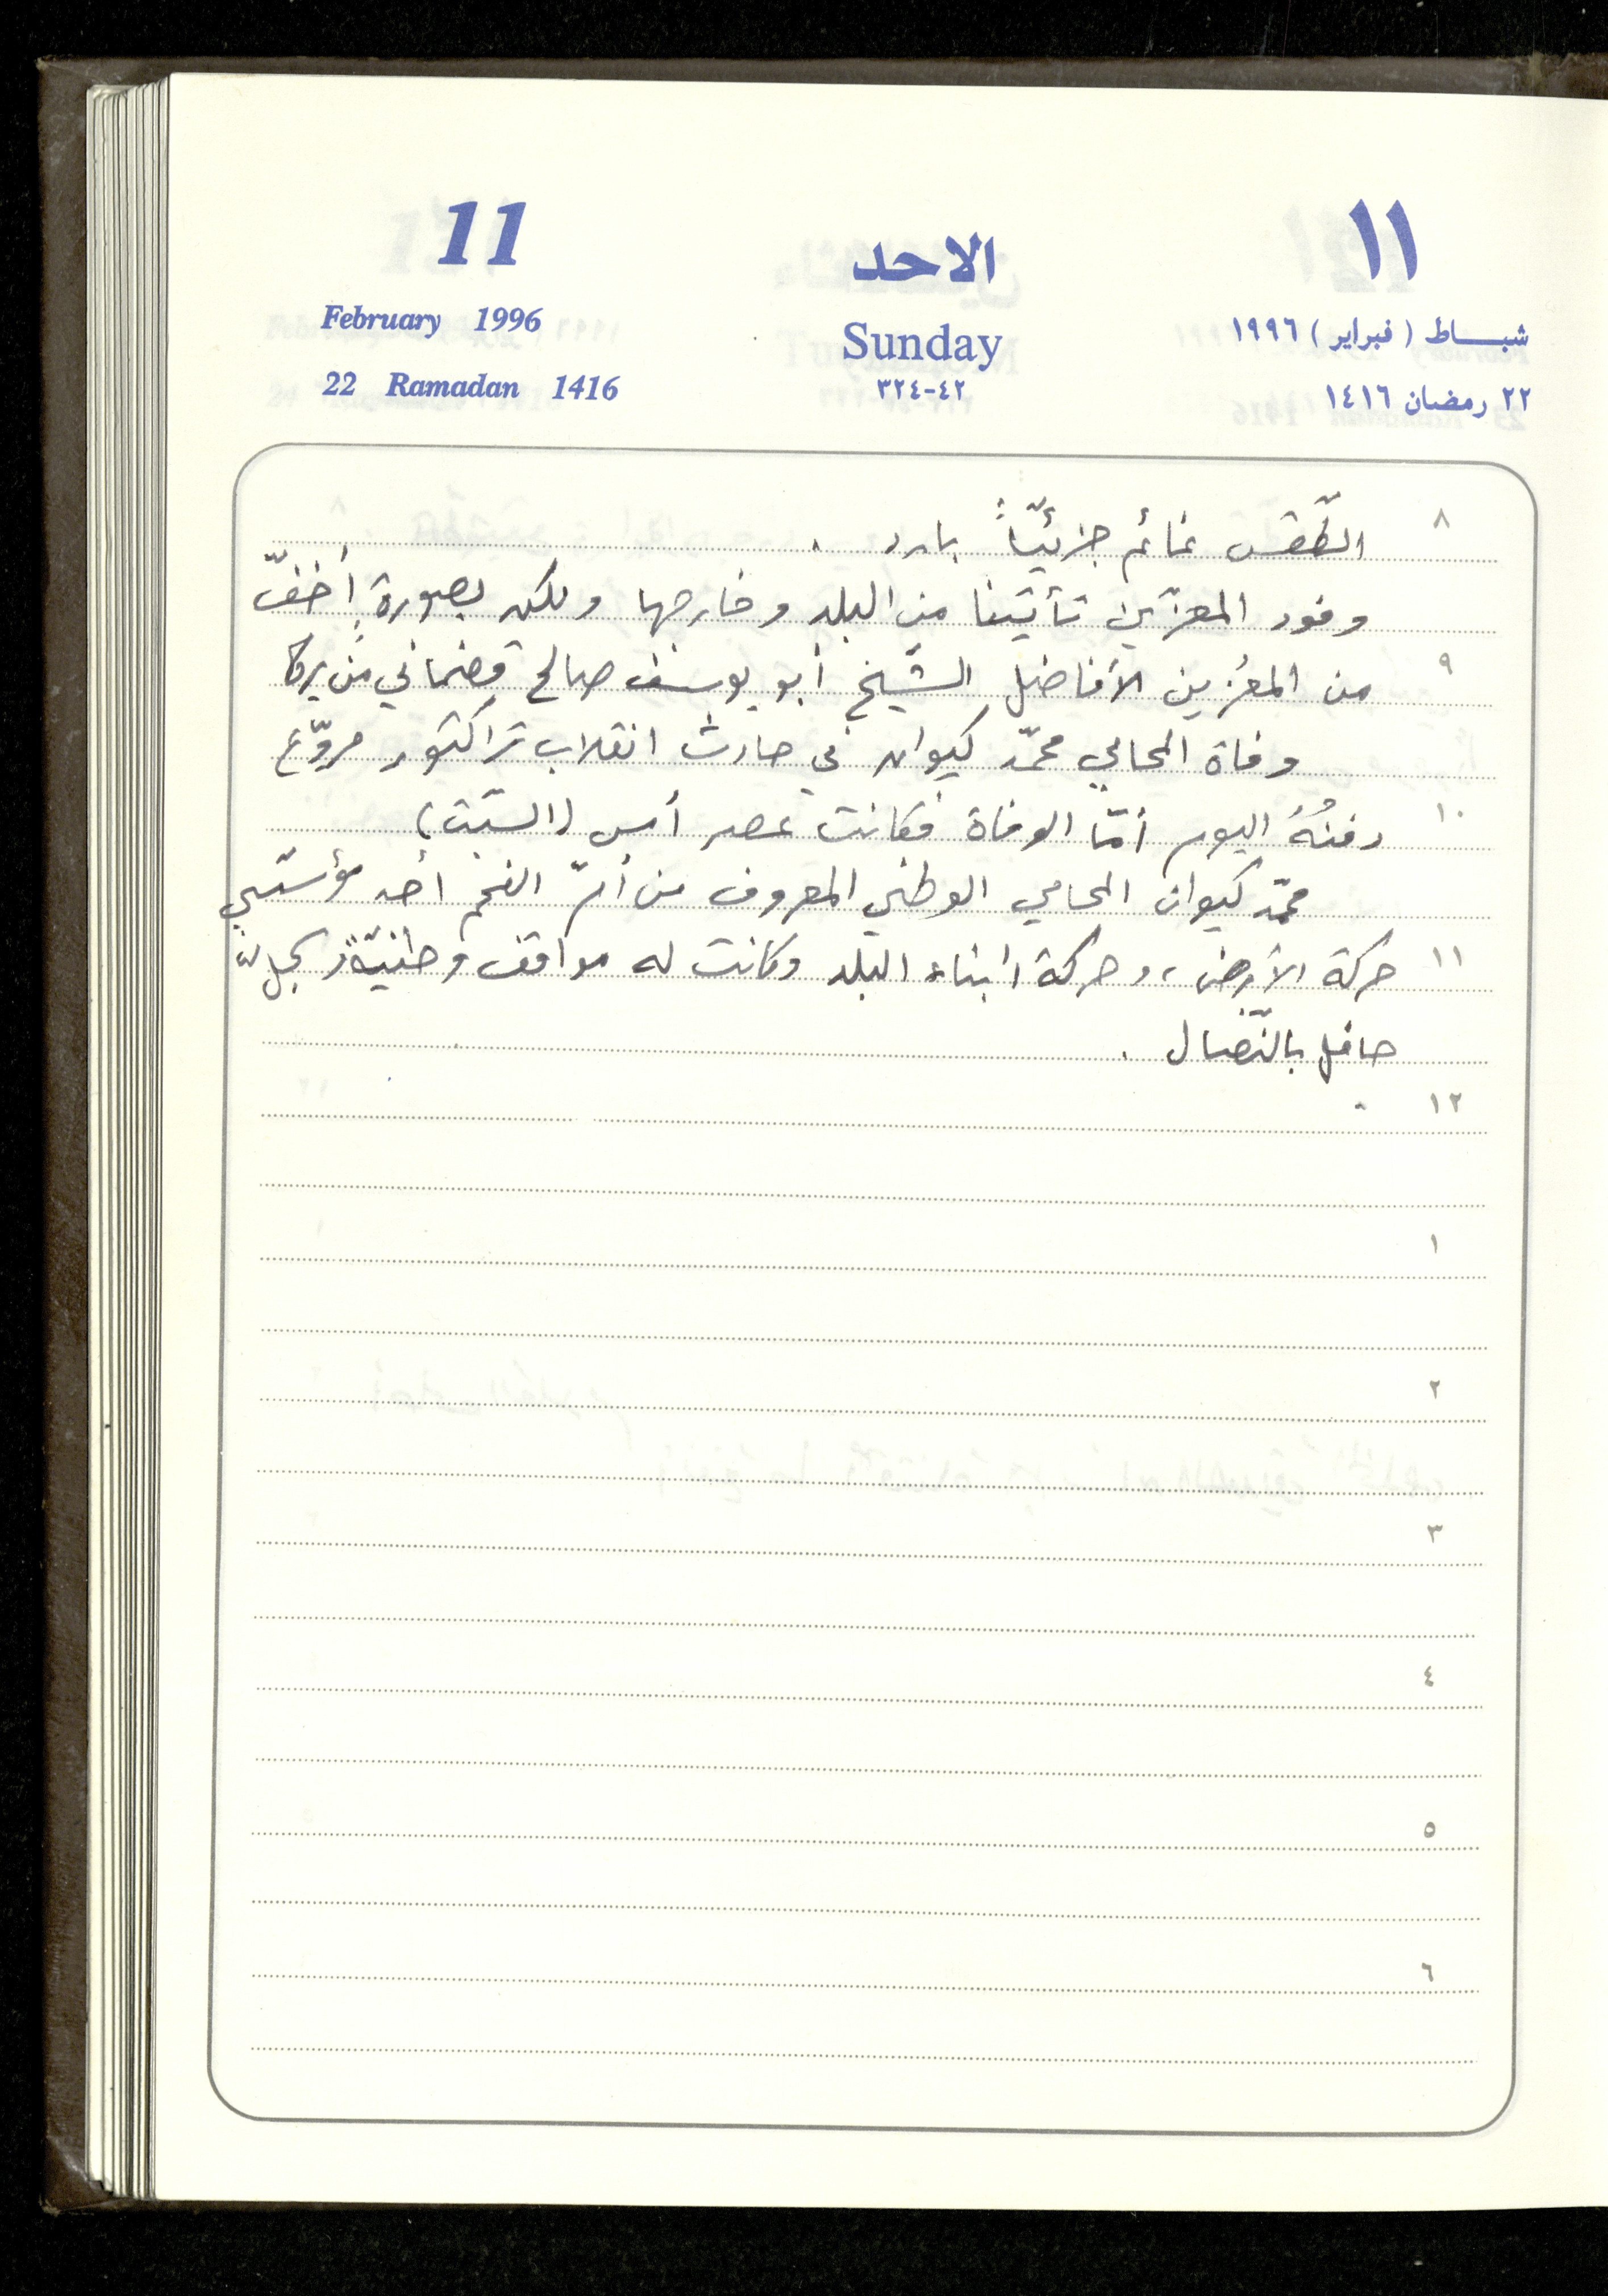 11 الاحد ١١
February 1996 Sunday شبـــاط (فبراير) ١٩٩٦
22 Ramadan 1416 ٤٢-٣٢٤ ٢٢ رمضان ١٤١٦
٨ الطّقس غائم جزئيّاً بارد .
وفود المعزّين تأتينا من البلد وخارجها ولكن بصورةٍ أخفّ
٩ من المعزين الأفاضل الشّيخ أبو يوسف صالح قضماني من يركا
وفاة المحامي محمّد كيوان في حادث انقلاب تراكتور مروّع
١٠ دفنُهُ اليوم أمّا الوفاة فكانت عصر أمس (السّبت)
محمّد كيوان المحامي الوطني المعروف من أمّ الفحم أحد مؤسّسي
١١ حركة الأرض، وحركة أبناء البلد وكانت له مواقف وطنيّة وسجلّ
حافل بالنّضال .
١٢
١
٢
٣
٤
٥
٦